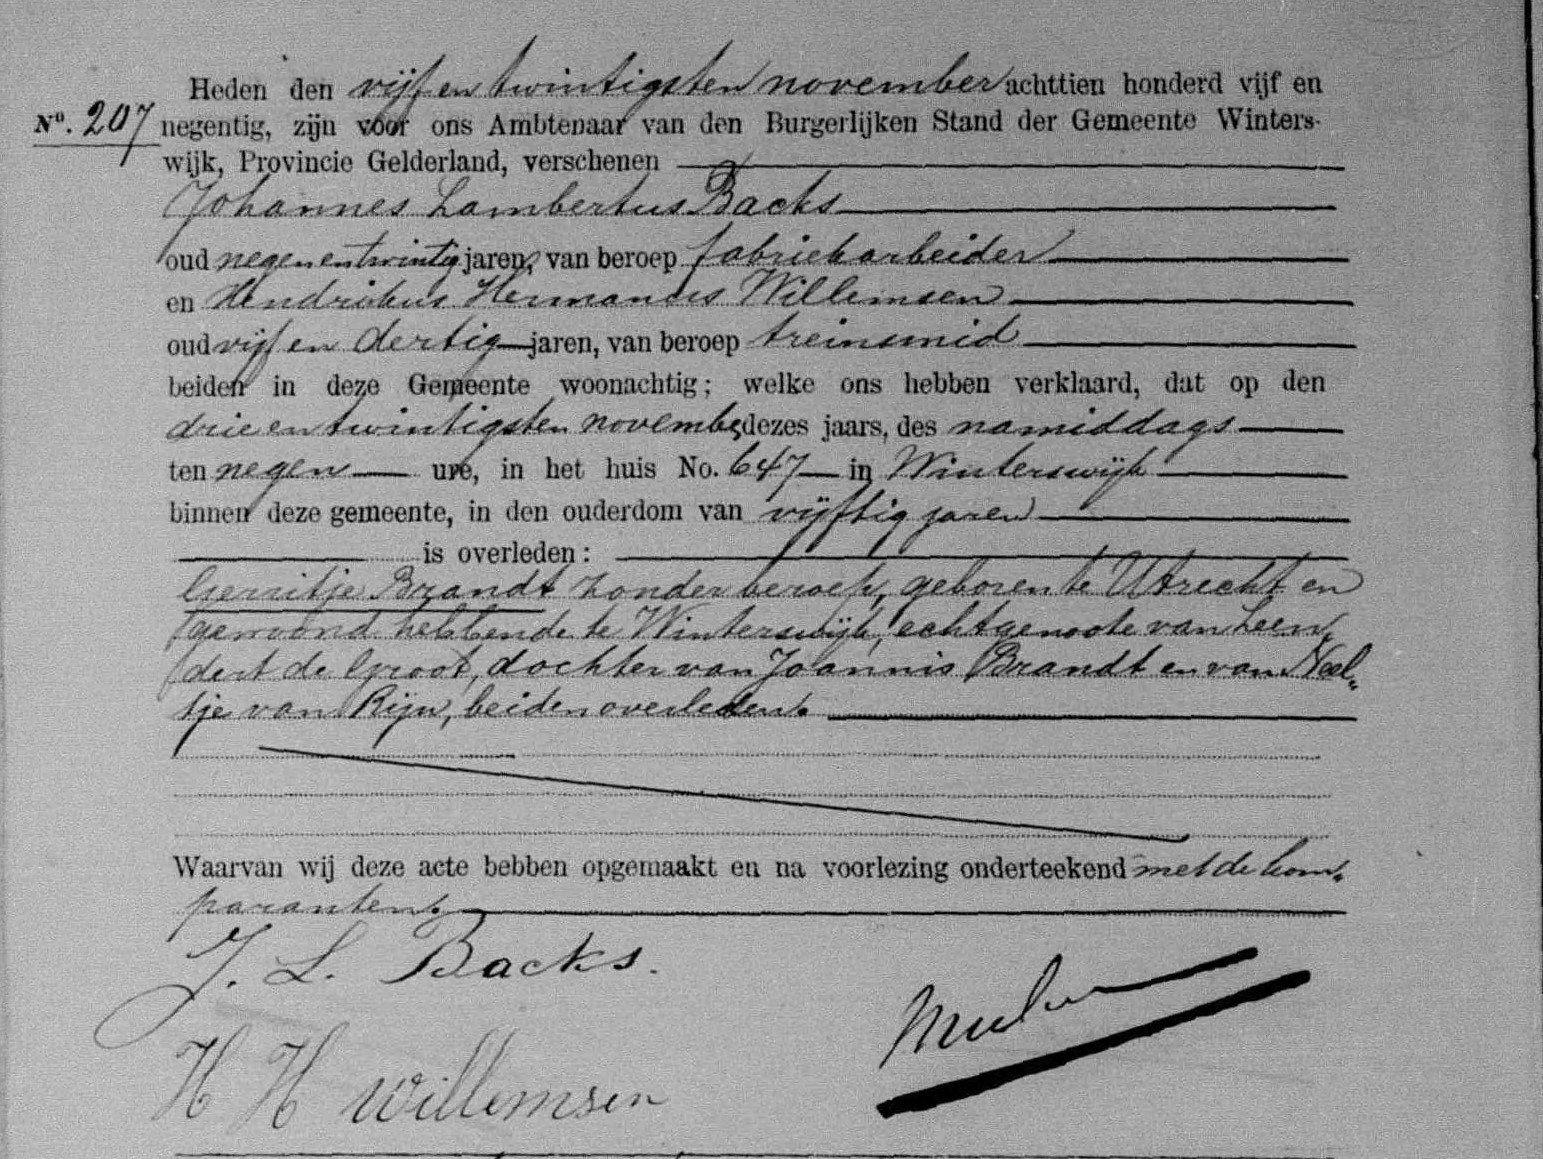 Heden den vijf en twintigsten november achttien honderd vijf en
No. 207 negentig, zijn voor ons Ambtenaar van den Burgerlijken Stand der Gemeente Winters-
wijk, Provincie Gelderland, verschenen
Johannes Lambertus Backs
oud negenentwintig jaren, van beroep fabriekarbeider
en Hendrikus Hermanus Willemsen
oud vijf en dertig jaren, van beroep treinsmid
beiden in deze Gemeente woonachtig; welke ons hebben verklaard, dat op den
drie en twintigsten november dezes jaars, des namiddags
ten negen ure, in het huis No. 647 in Winterswijk
binnen deze gemeente, in den ouderdom van vijftig jaren
is overleden:
Gerritje Brandt zonder beroep, geboren te Utrecht en
gewoond hebbende te Winterswijk, echtgenoote van Leen„
dert de Groot, dochter van Joannis Brandt en van Neel„
tje van Rijn, beiden overleden.
Waarvan wij deze acte hebben opgemaakt en na voorlezing onderteekend met de kom„
paranten.
J. L. Backs.
H H Willemsen